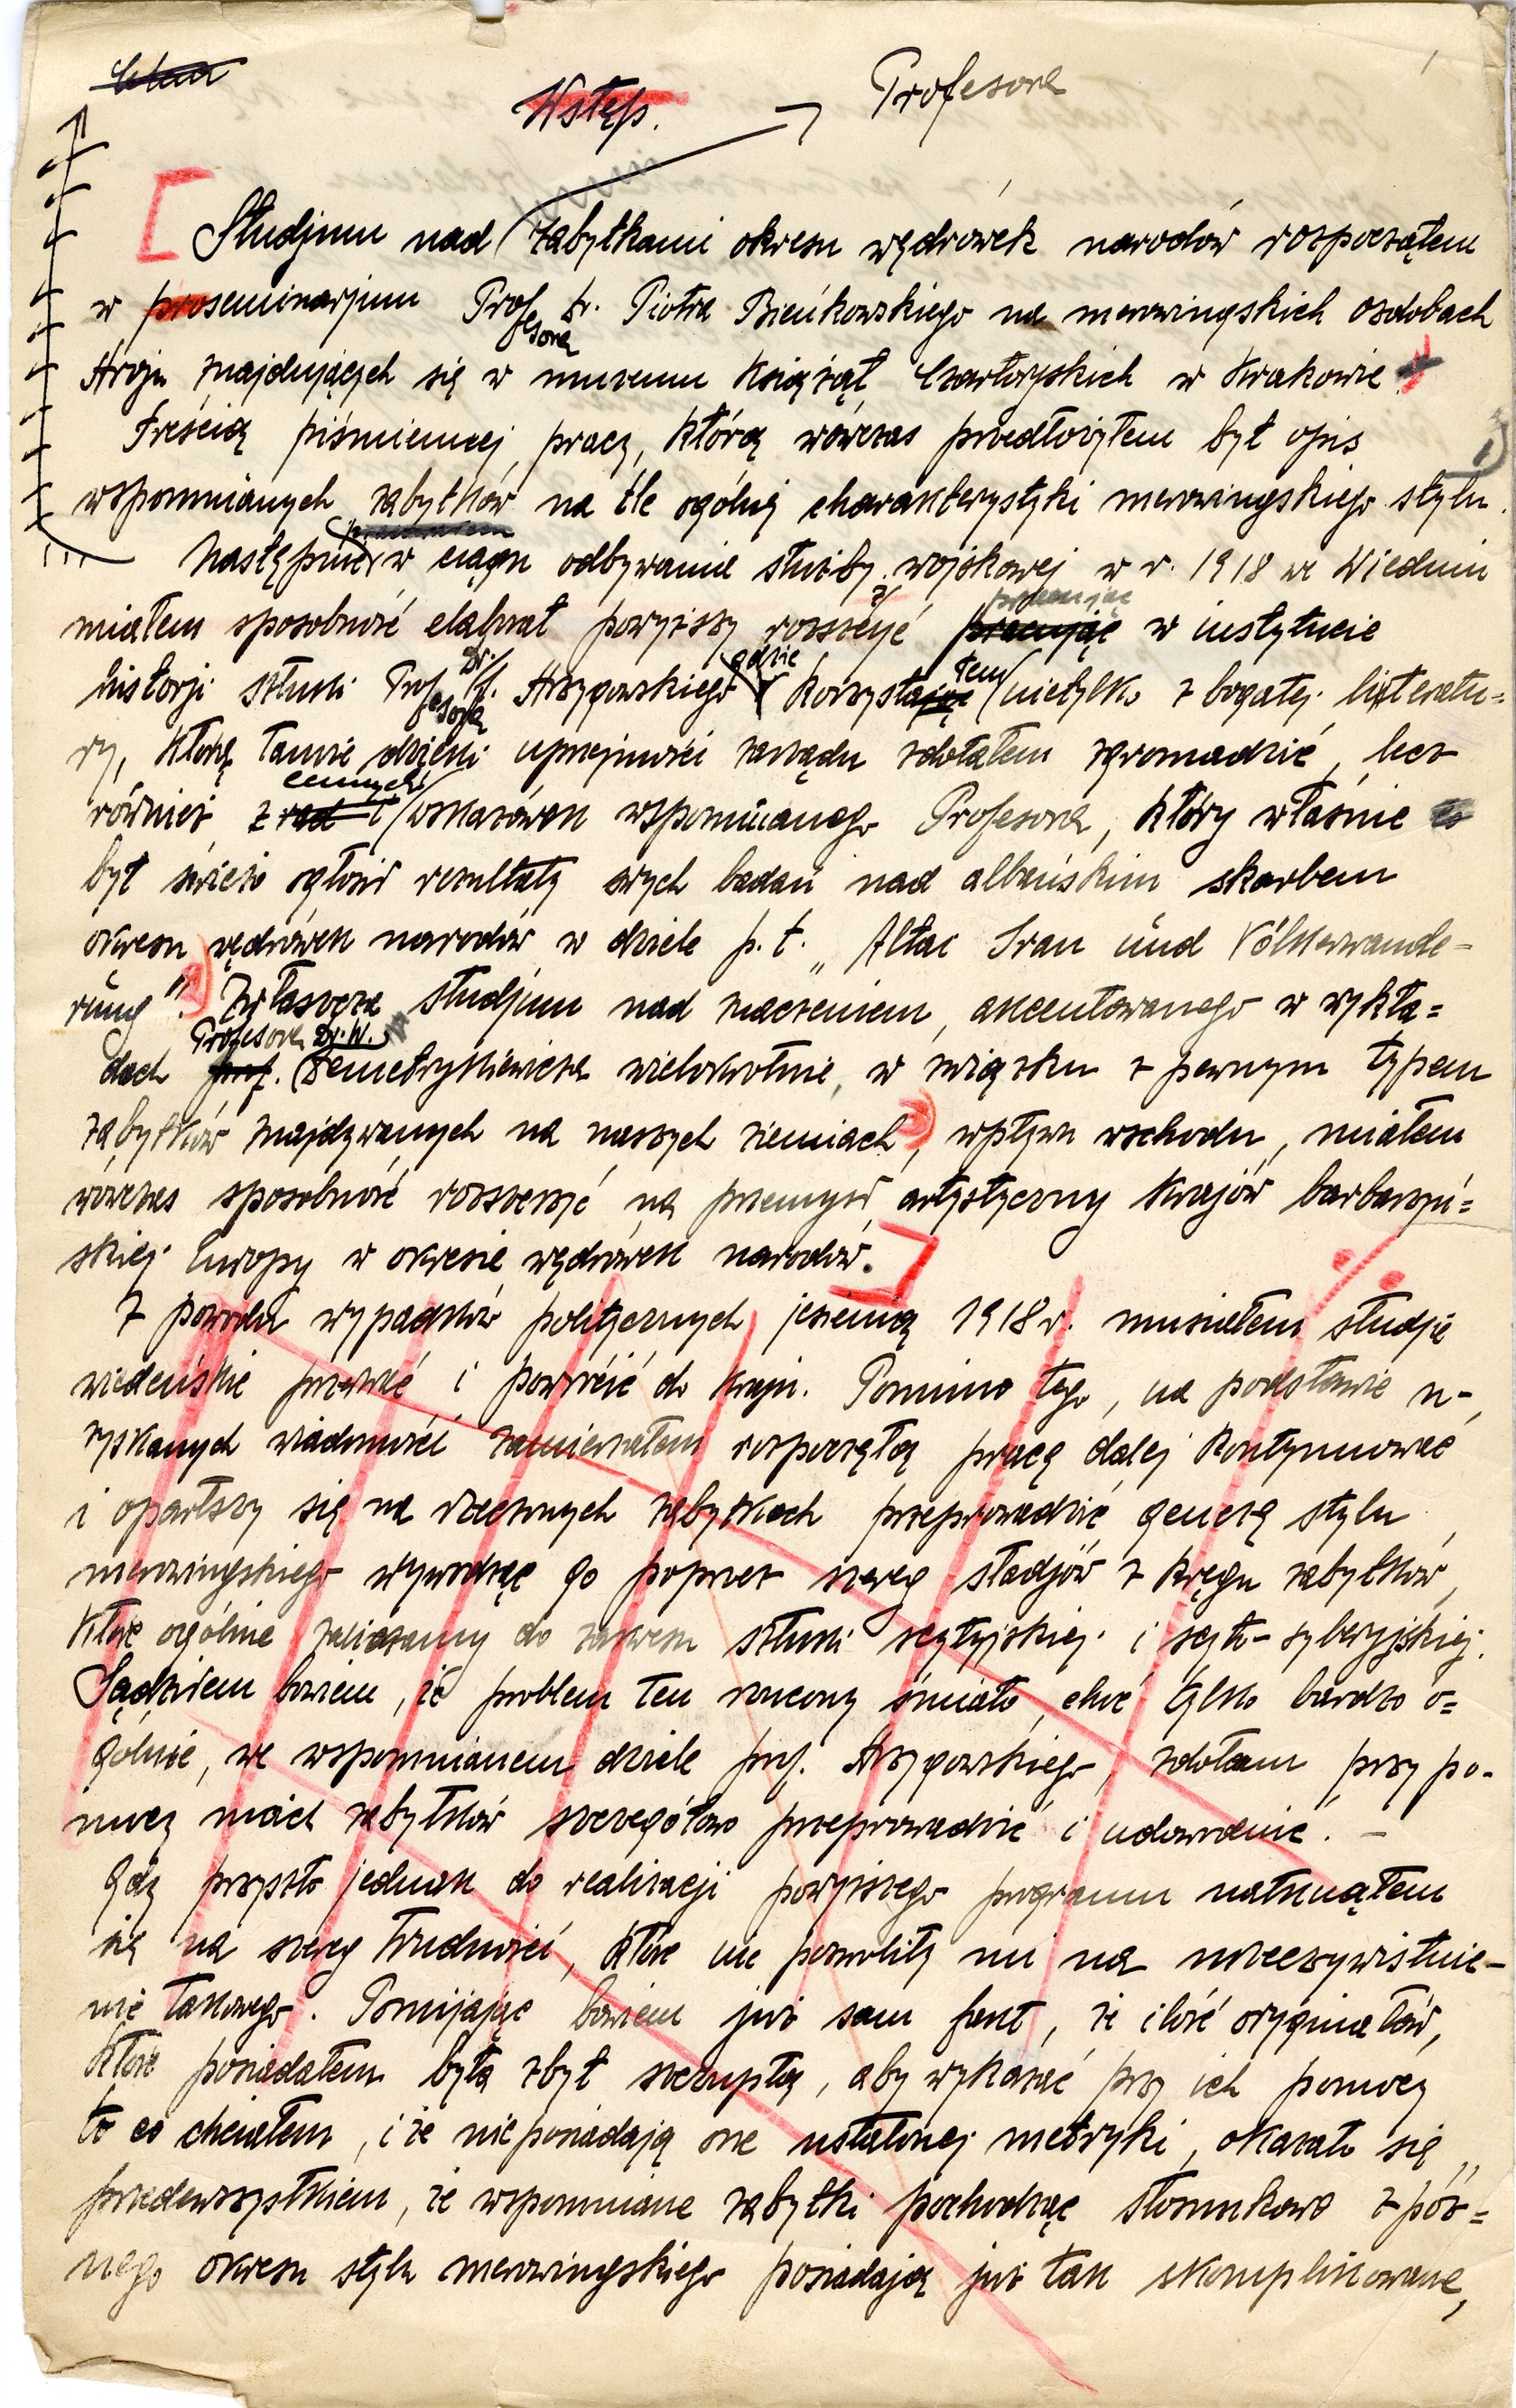 Wstęp.
Profesora
Studjum nad zabytkami okresu wędrówek narodów rozpocząłem
w proseminarjum Profesora Dr. Piotra Bieńkowskiego na merowingskich ozdobach
stroju znajdujących się w muzeum Książąt Czartoryskich w Krakowie.
Treścią piśmiennej pracy, którą wówczas przedłożyłem był opis
wspomnianych zabytków na tle ogólnej charakterystyki merowingskiego stylu.
Następnie w ciągu odbywanie służby wojskowej w r. 1918 we Wiedniu
miałem sposobność elaborat powyższy rozszerzyć pracując w instytucie
historji sztuki Profesora Dr. J. Strzygowskiego gdzie korzystałem nietylko z bogatej literatu=
ry, którą tamże dzięki uprzejmości zarządu zdołałem zgromadzić, lecz
również z rad i cennych wskazówek wspomnianego Profesora, który właśnie
był świeżo ogłosił rezultaty swych badań nad albańskim skarbem
okresu wędrówek narodów w dziele p. t. „Altai Iran und Völkerwande-
rung". Zwłaszcza studjum nad znaczeniem, akcentowanego w wykła=
dach prof. Profesora Dr. W. Demetrykiewicza wielokrotnie, w związku z pewnym typem
zabytków znajdywanych na naszych ziemiach, wpływu wschodu, miałem
wówczas sposobność rozszerzyć na przemysł artystyczny krajów barbarzyń=
skiej Europy w okresie wędrówek narodów.
Z powodu wypadków politycznych jesienią 1918 r. musiałem studja
wiedeńskie przerwać i powrócić do kraju. Pomimo tego, na podstawie u-
zyskanych wiadomości zamierzałem rozpoczętą pracę dalej kontynuować
i oparłszy się na rzeczonych zabytkach przeprowadzić genezę stylu
merowingskiego wywodząc go poprzez szereg stadjów z kręgu zabytków,
które ogólnie zaliczamy do zakresu sztuki scytyjskiej i scyto-syberyjskiej.
Sądziłem bowiem, że problem ten rzucony śmiało, choć tylko bardzo o=
gólnie, we wspomnianem dziele prof. Strzygowskiego, zdołam przy po-
mocy moich zabytków szczegółowo przeprowadzić i udowodnić. –
Gdy przyszło jednak do realizacji powyższego programu natknąłem
się na szereg trudności, które nie pozwoliły mi na urzeczywistnie-
nie takowego. Pomijając bowiem już sam fakt, że ilość oryginałów,
które posiadałem była zbyt szczupłą, aby wykazać przy ich pomocy
to co chciałem, i że nie posiadają one ustalonej metryki, okazało się
przedewszystkiem, że wspomniane zabytki pochodząc stosunkowo z póź=
nego okresu stylu merowingskiego posiadają już tak skomplikowane,